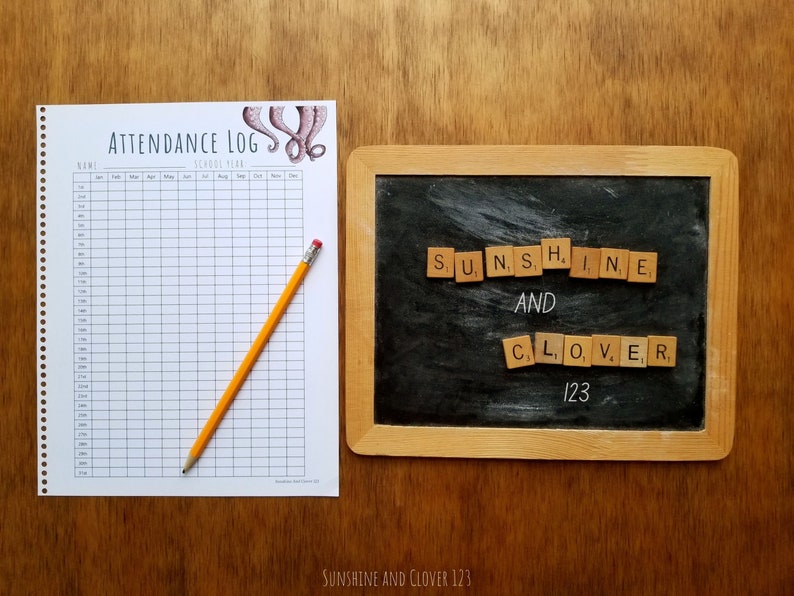 ATTENDANCE LOG
NAME: SCHOOL YEAR:
Jan Feb Mar Apr May Jun Jul Aug Sep Oct Nov Dec
1st
2nd
3rd
4th
5th
6th
7th
8th
9th
10th
11th
12th
13th
14th
15th
16th
17th
18th
19th
20th
21st
22nd
23rd
24th
25th
26th
27th
28th
29th
30th
31st
Sunshine And Clover 123
S1 U1 N1 S1 H4 I1 N1 E1
AND
C3 L1 O1 V4 E1 R1
123
SUNSHINE AND CLOVER 123